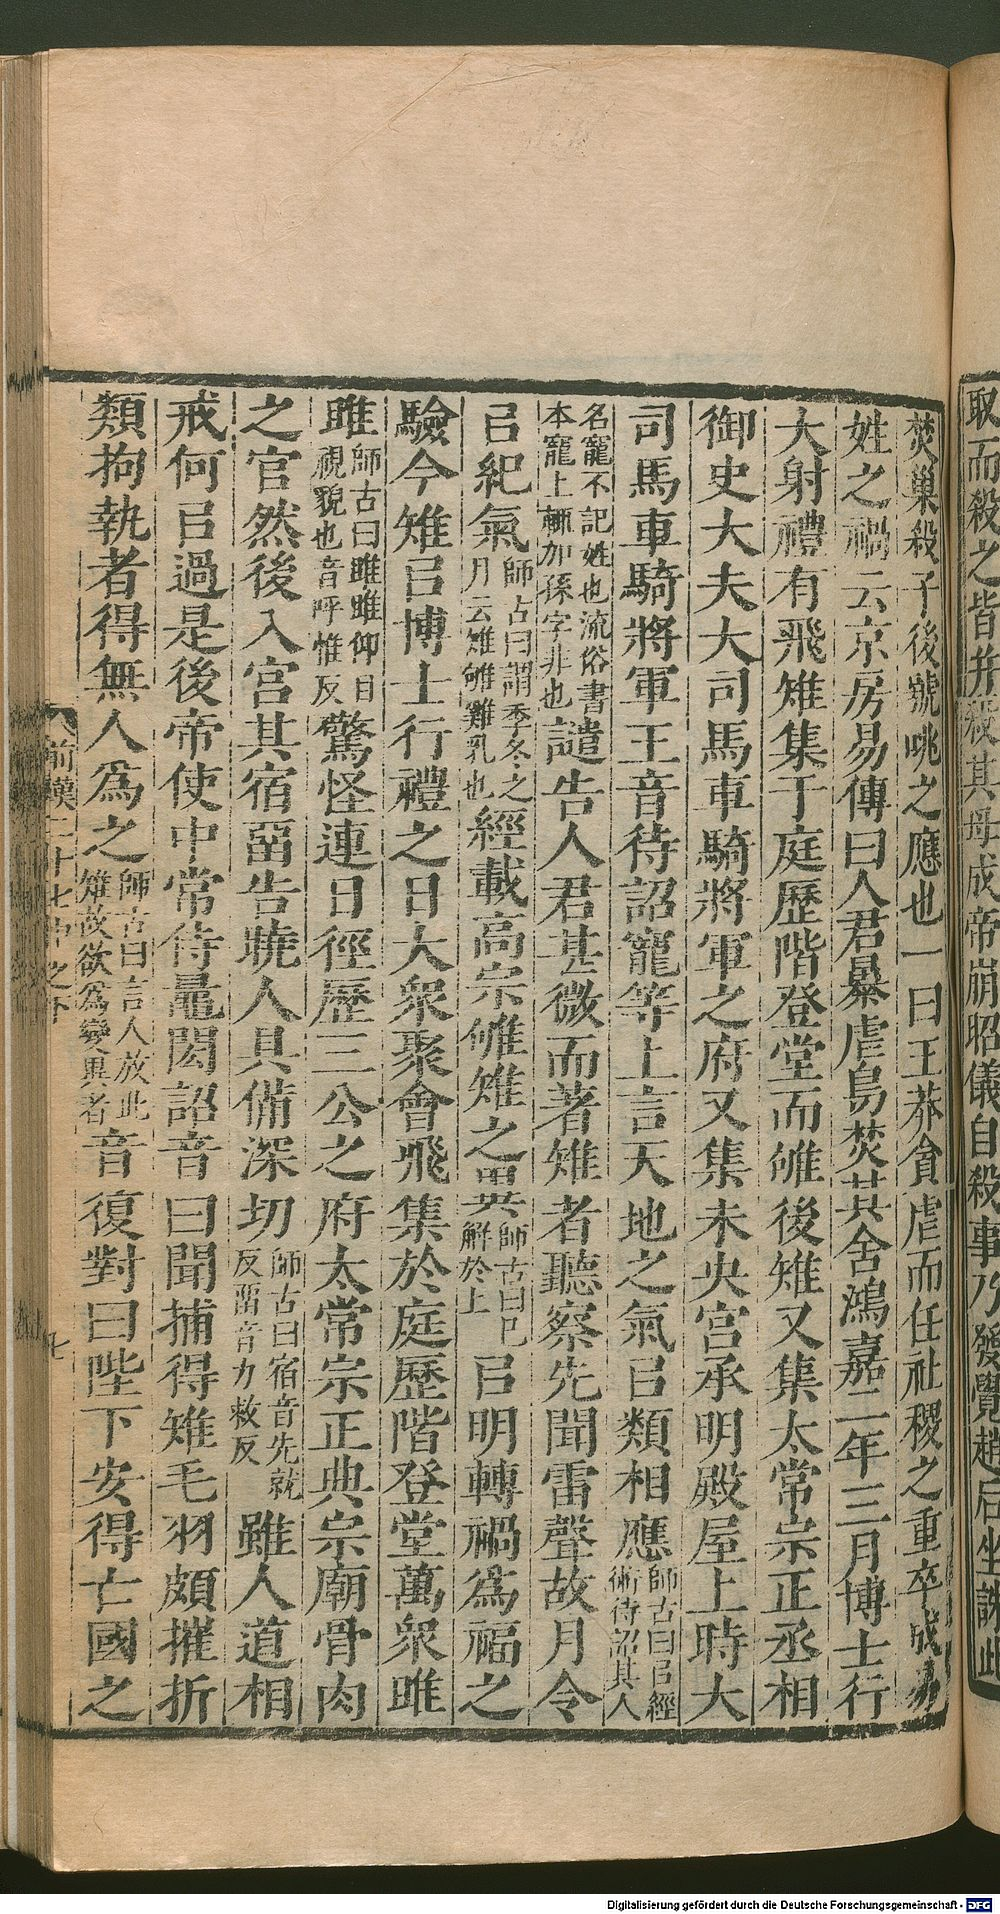 取而殺之皆并殺其母成帝崩昭儀自殺事乃發覺趙后坐誅此
焚巢殺子後號咷之應也一曰王莽貪虐而任社稷之重卒成易
姓之禍云京房易傳曰人君暴虐鳥焚其舍鴻嘉二年三月博士行
大射禮有飛雉集于庭歷階登堂而雊後雉又集太常宗正丞相
御史大夫大司馬車騎將軍之府又集未央宮承明殿屋上時大
司馬車騎將軍王音待詔寵等上言天地之氣㠯類相應師古曰㠯經術待詔其人
名寵不記姓也流俗書本寵上輒加孫字非也譴告人君甚微而著雉者聽察先聞雷聲故月令
㠯紀氣師古曰謂季冬之月云雉雊雞乳也經載高宗雊雉之異師古曰已解於上㠯明轉禍為福之
驗今雉㠯博士行禮之日大衆聚會飛集於庭歷階登堂萬衆睢
睢師古曰睢睢仰目視貌也音呼惟反驚怪連日徑歷三公之府太常宗正典宗廟骨肉
之官然後入宮其宿畱告曉人具備深切師古曰宿音先就反畱音力救反雖人道相
戒何㠯過是後帝使中常侍鼂閎詔音曰聞捕得雉毛羽頗摧折
類拘執者得無人為之師古曰言人放此雉故欲為變異者音復對曰陛下安得亡國之
前漢二十七中之下
七
Digitalisierung gefördert durch die Deutsche Forschungsgemeinschaft - DFG